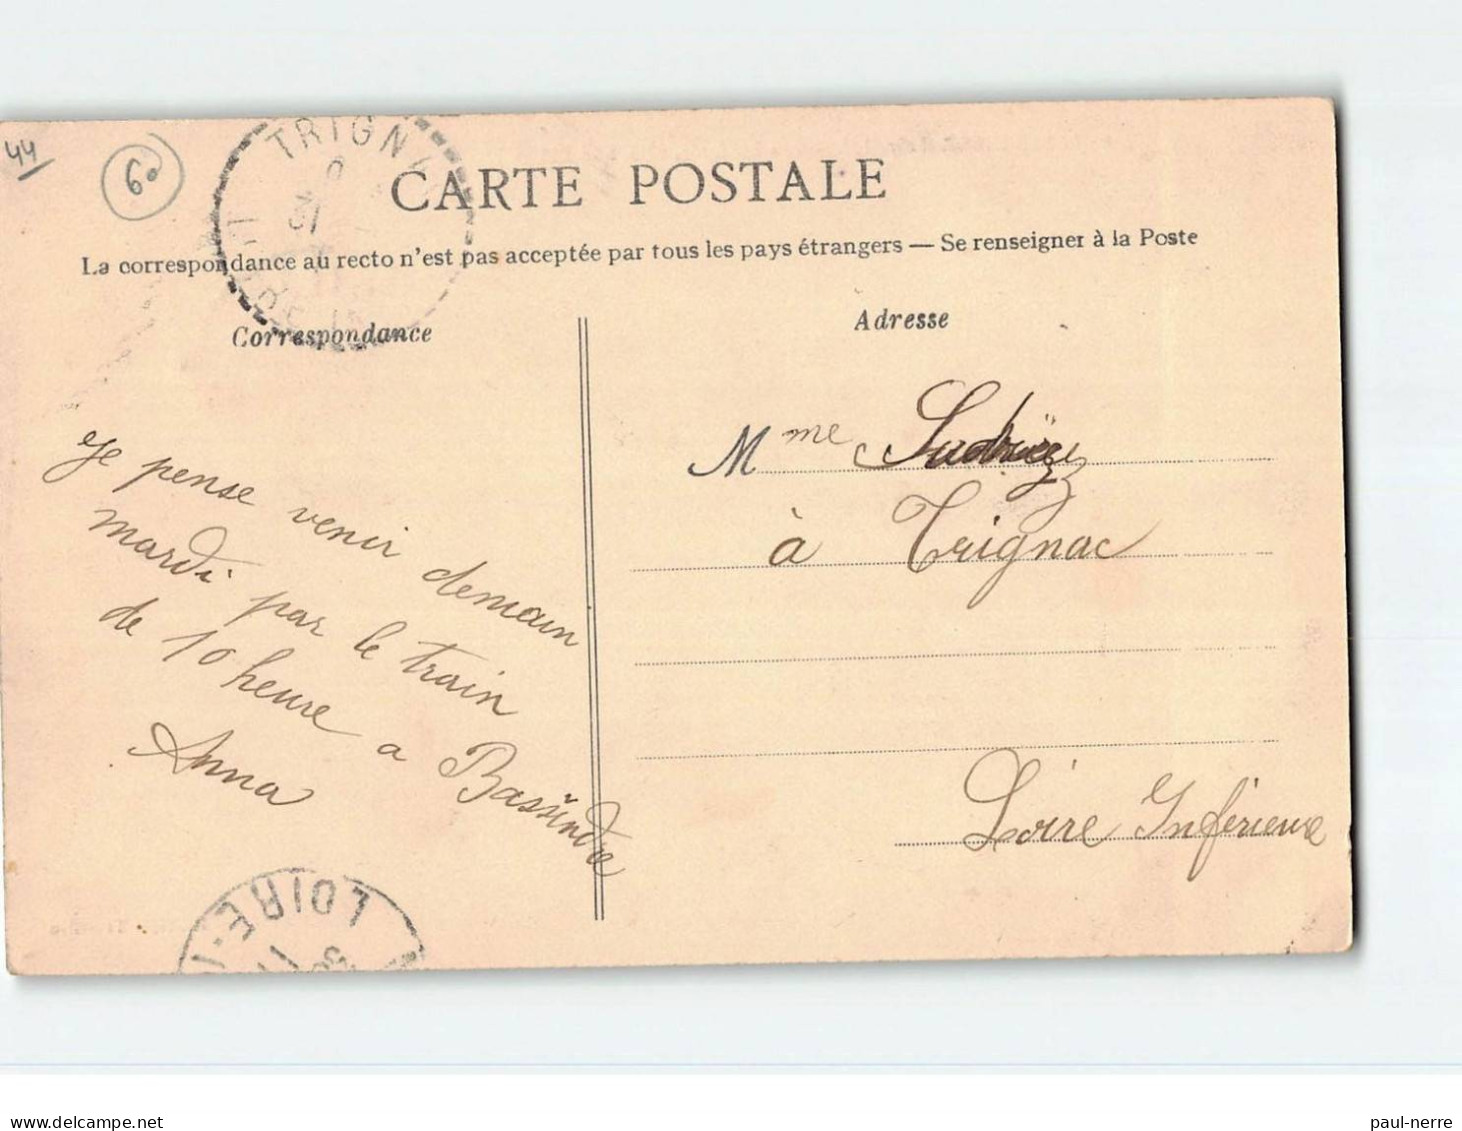 44
60
TRIGNA
CARTE POSTALE
La correspondance au recto n'est pas acceptée par tous les pays étrangers — Se renseigner à la Poste
Correspondance
Adresse
Je pense venir demain
mardi par le train
de 10 heure a Bassindre
Anna
Mme
à Trignac
Loire Inférieure
LOIRE-I
paul-nerre